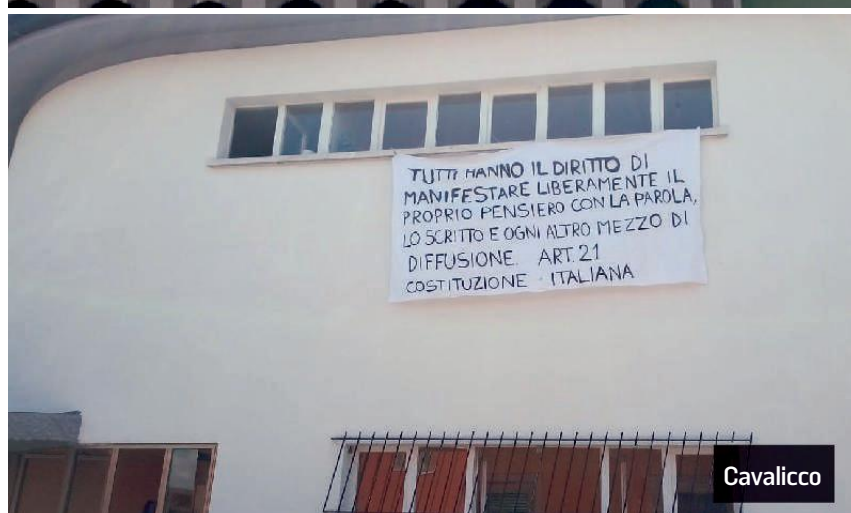 TUTTI HANNO IL DIRITTO DI
MANIFESTARE LIBERAMENTE IL
PROPRIO PENSIERO CON LA PAROLA,
LO SCRITTO E OGNI ALTRO MEZZO DI
DIFFUSIONE. ART. 21
COSTITUZIONE ITALIANA
Cavalicco